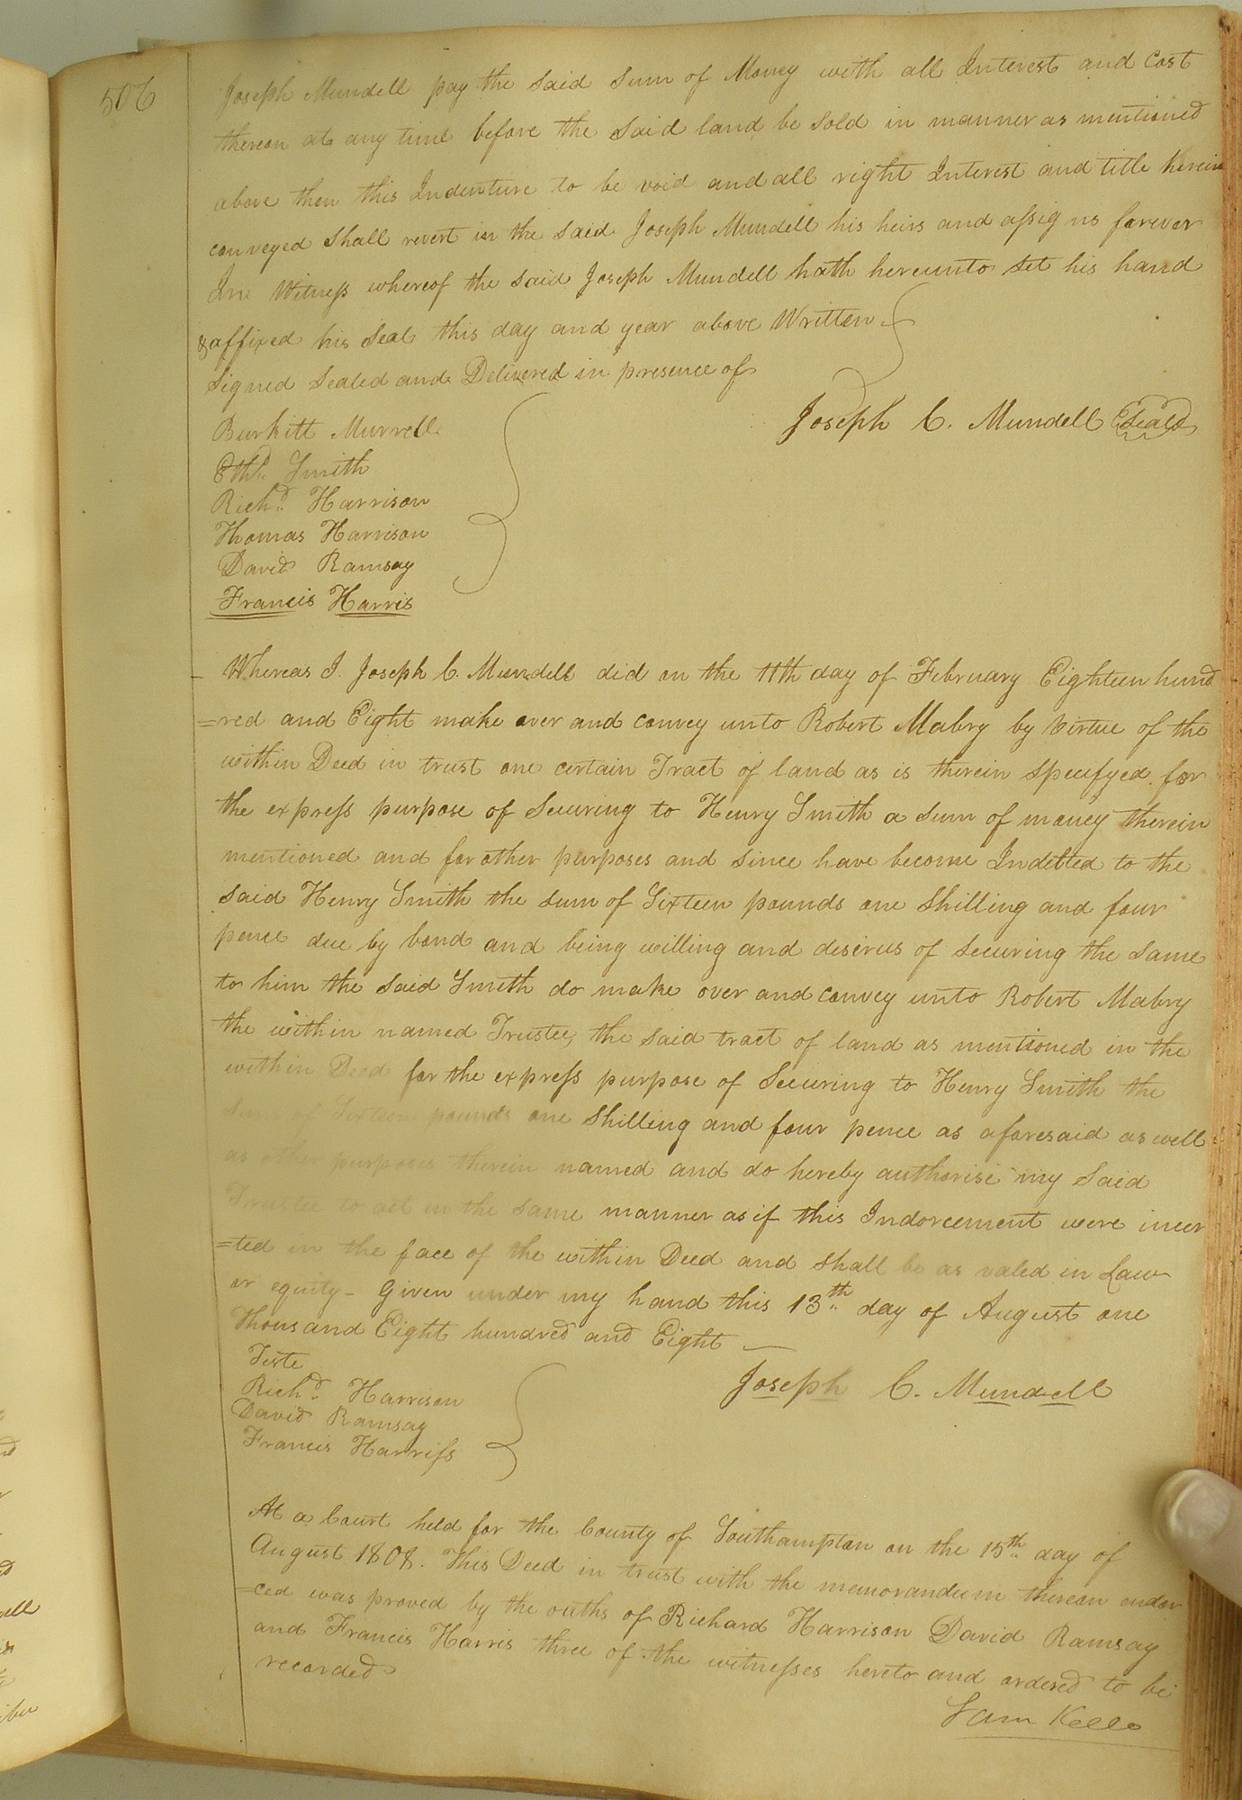 506
Joseph Mundell pay the said sum of Money with all Interest and Cost
thereon at any time before the said land be sold in manner as mentioned
above then this Indenture to be void and all right Interest and title herein
conveyed shall revert in the said Joseph Mundell his heirs and assigns forever
In Witness whereof the said Joseph Mundell hath hereunto set his hand
& affixed his Seal this day and year above Written
Signed Sealed and Delivered in presence of
Joseph C. Mundell Seal
Burkitt Murrell
Ethd. Smith
Richd. Harrison
Thomas Harrison
David Ramsay
Francis Harris
Whereas I Joseph C. Mundell did on the 11th day of February Eighteen hund
=red and Eight make over and convey unto Robert Mabry by virtue of the
within Deed in trust one certain Tract of land as is therein specifyed for
the express purpose of Securing to Henry Smith a sum of money therein
mentioned and for other purposes and since have become Indebted to the
said Henry Smith the sum of Sixteen pounds one Shilling and four
pence due by bond and being willing and desirus of securing the same
to him the said Smith do make over and convey unto Robert Mabry
the within named Trustee, the said tract of land as mentioned in the
within Deed for the express purpose of Securing to Henry Smith the
Sum of Sixteen pounds one Shilling and four pence as aforesaid as well
as other purposes therein named and do hereby authorise my said
Trustee to act in the same manner as if this Indorcement were incer
=ted in the face of the within Deed and shall be as valed in Law
or equity - Given under my hand this 13th. day of August one
thousand Eight hundred and Eight
Teste
Richd. Harrison
David Ramsay
Francis Harriss
Joseph C. Mundell
At a Court held for the County of Southampton on the 15th. day of
August 1808. This Deed in trust with the memorandum thereon endor
=ced was proved by the ouths of Richard Harrison David Ramsay
and Francis Harris three of the witnesses hereto and ordered to be
recorded
Sam Kello